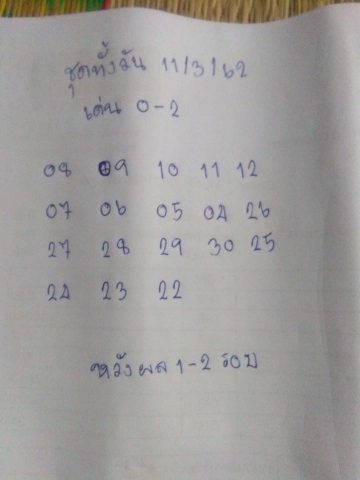 ชุดทั้งวัน 11/3/62
เด่น 0-2
08 09 10 11 12
07 06 05 04 26
27 28 29 30 25
24 23 22
หวังผล 1-2 รอบ